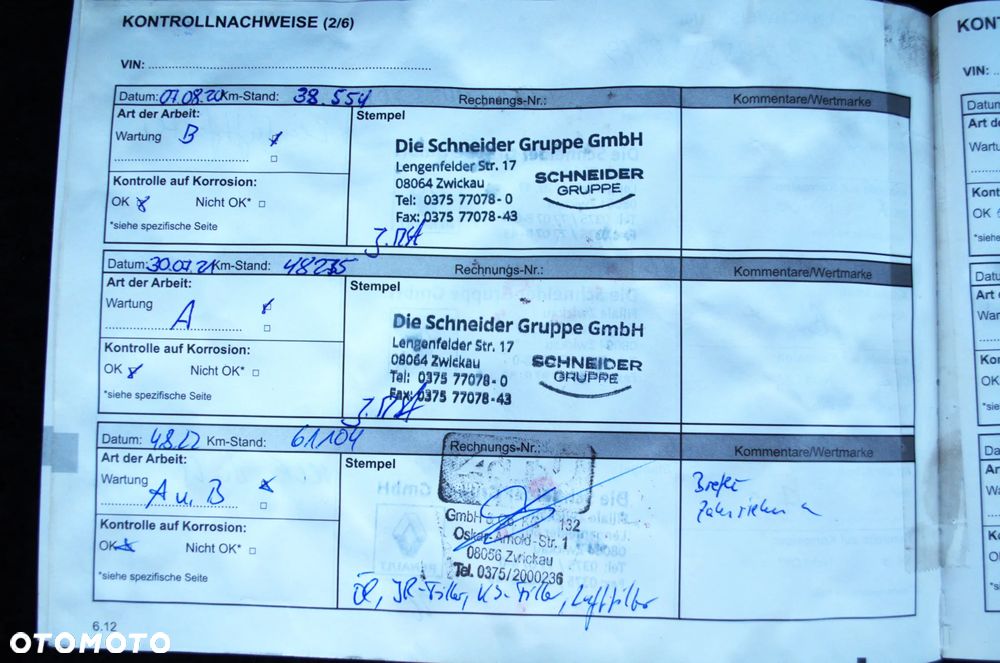 KONTROLLNACHWEISE (2/6)
VIN:
Datum: 07.08.20 Km-Stand: 38.554 Rechnungs-Nr.: Kommentare/Wertmarke
Art der Arbeit:
Stempel
Wartung B
Die Schneider Gruppe GmbH
Lengenfelder Str. 17
08064 Zwickau
Tel: 0375 77078-0
Fax: 0375 77078-43
SCHNEIDER
GRUPPE
Kontrolle auf Korrosion:
OK Nicht OK*
*siehe spezifische Seite
Datum: 30.07.21 Km-Stand: 48235 Rechnungs-Nr.: Kommentare/Wertmarke
Art der Arbeit:
Stempel
Wartung A
Die Schneider Gruppe GmbH
Lengenfelder Str. 17
08064 Zwickau
Tel: 0375 77078-0
Fax: 0375 77078-43
SCHNEIDER
GRUPPE
Kontrolle auf Korrosion:
OK Nicht OK*
*siehe spezifische Seite
Datum: 4.8.22 Km-Stand: 61104 Rechnungs-Nr.: Kommentare/Wertmarke
Art der Arbeit:
Stempel
Wartung A u. B
GmbH & Co. KG 132
Oskar-Arnold-Str. 1
08056 Zwickau
Tel. 0375/2000236
Kontrolle auf Korrosion:
OK Nicht OK*
*siehe spezifische Seite
Öl, IR-Filter, KS-Filter, Luftfilter
6.12
OTOMOTO
KONT
VIN: